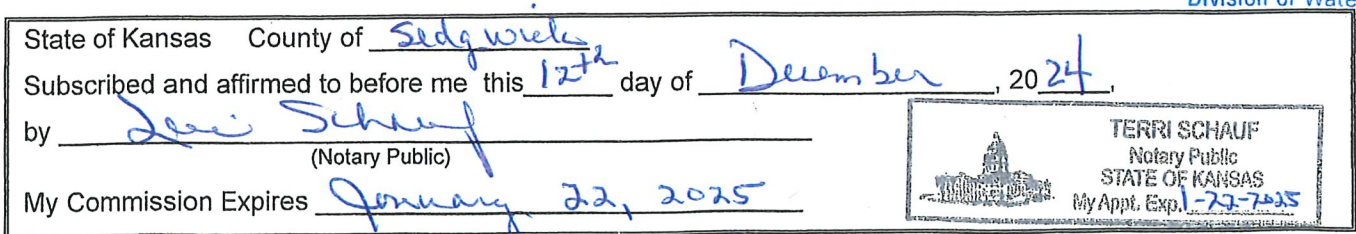 Division of Wate
State of Kansas County of Sedgwick
Subscribed and affirmed to before me this 12th day of December, 2024,
by Terri Schauf
(Notary Public)
My Commission Expires January 22, 2025
TERRI SCHAUF
Notary Public
STATE OF KANSAS
My Appt. Exp. 1-22-2025